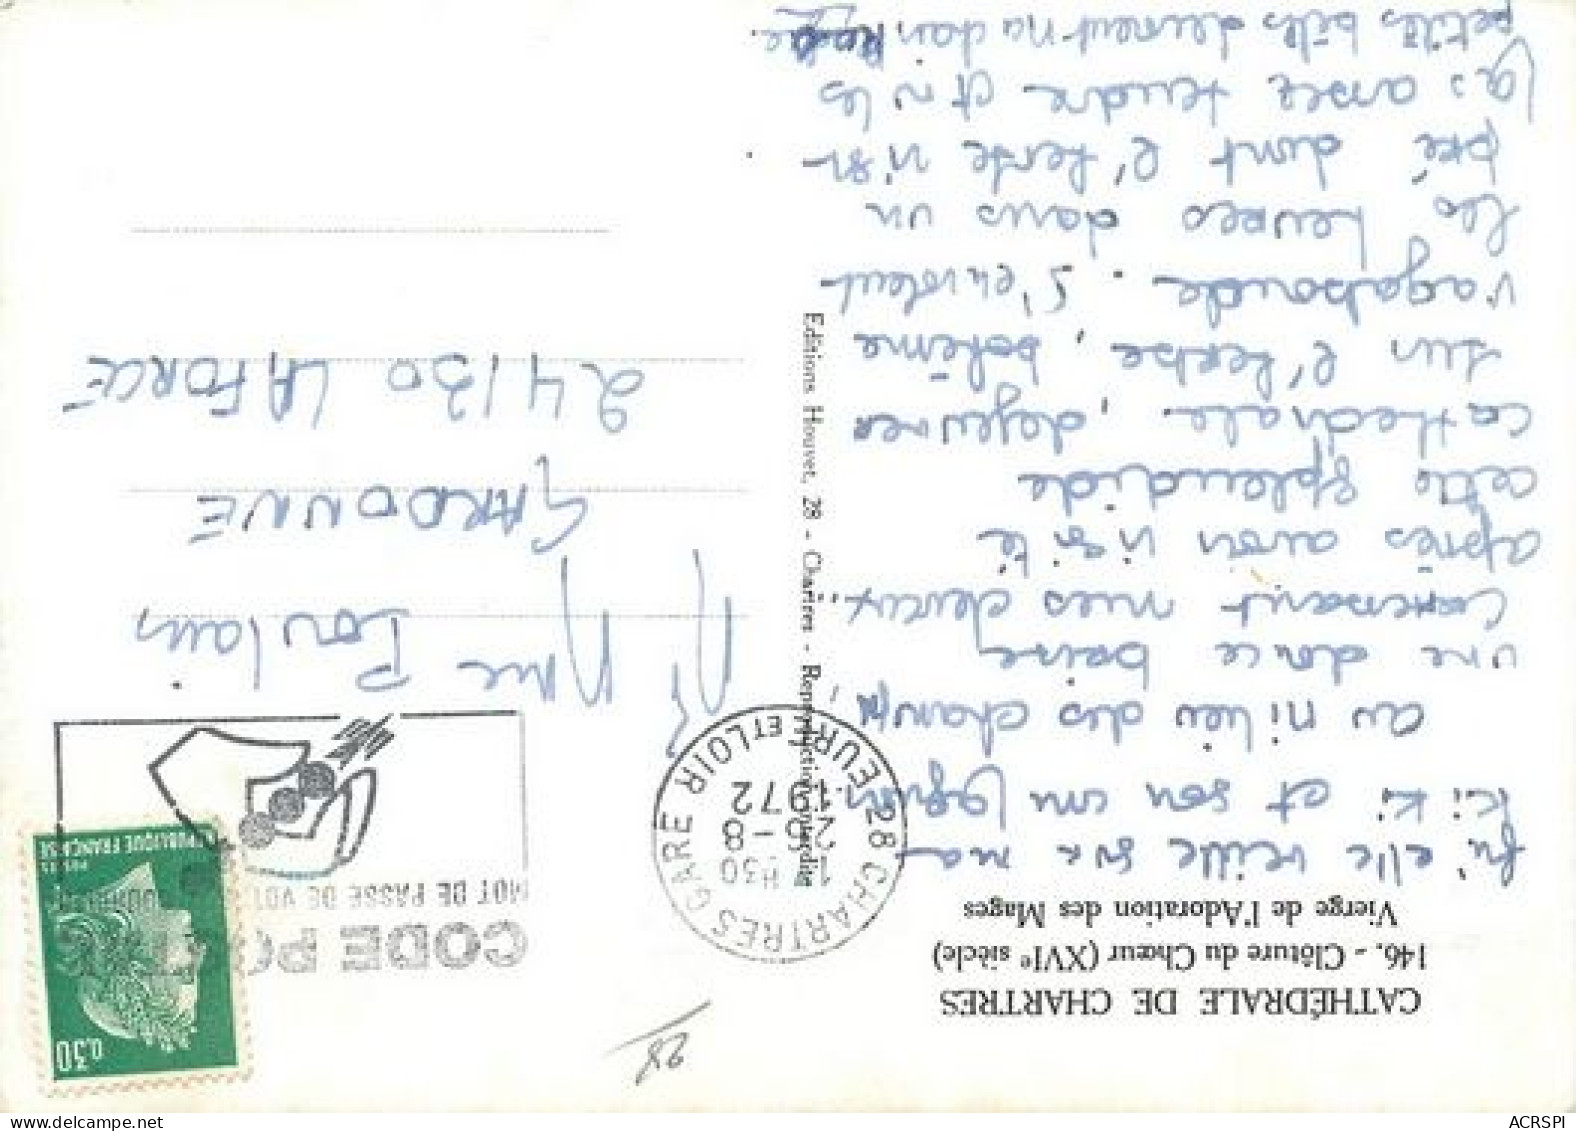 CATHÉDRALE DE CHARTRES
146. - Clôture du Chœur (XVIe siècle)
Vierge de l'Adoration des Mages
qu'elle veille sur ma
Kiki et son compagnon
au milieu des champs
une douce brise,
caressant mes cheveux..
après avoir visité
cette splendide
cathédrale. dejeuner
sur l'herbe, bohème
vagabonde. S'envolent
les heures dans un
pré dont l'herbe n'est
pas assez tendre et n les
petites bêtes
Editions Houvet, 28 - Chartres - Reproduction interdite
28 CHARTRES GARE
EURE ET LOIR
1 H30
26-8
1972
CODE PO
MOT DE PASSE DE VOT
0,30
POSTES
REPUBLIQUE FRANÇAISE
Mr Mme Poulain
GARDONNE
24130 LA FORCE
28
ACRSPI